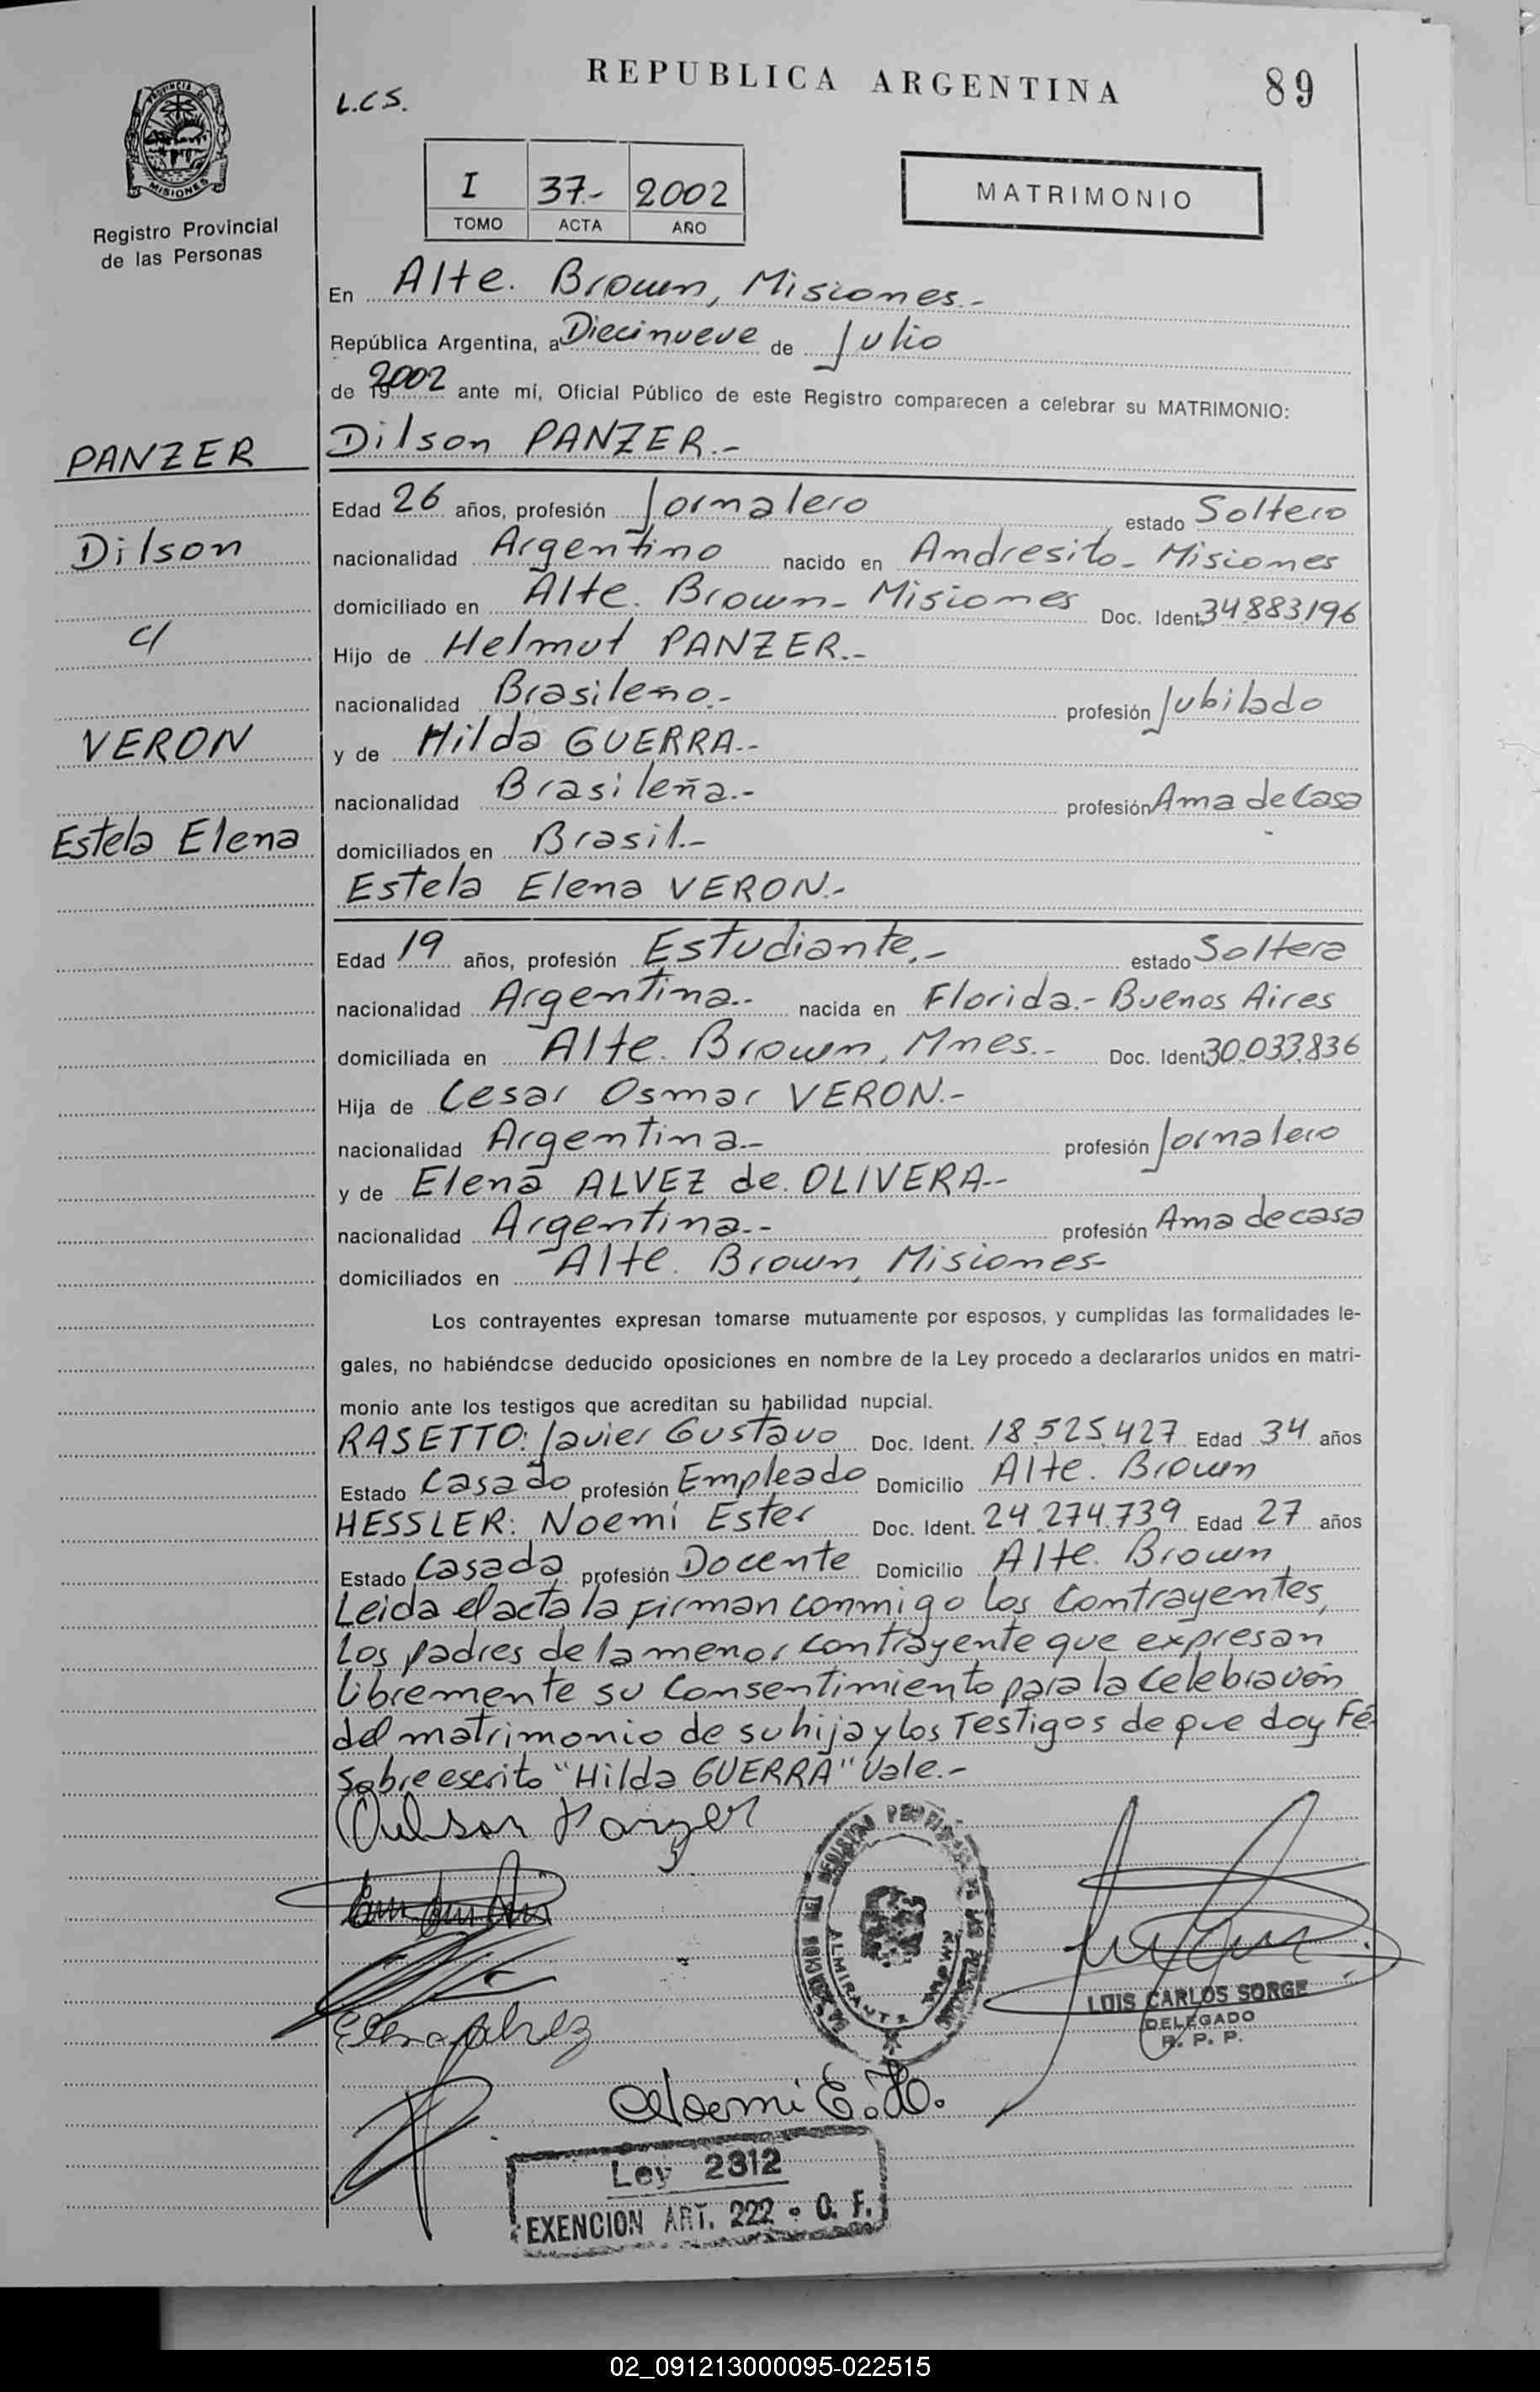 REPUBLICA ARGENTINA
89
L.C.S.
PROVINCIA DE
MISIONES
Registro Provincial
de las Personas
I 37.- 2002
TOMO ACTA AÑO
MATRIMONIO
En Alte. Brown, Misiones.-
República Argentina, a Diecinueve de Julio
de 2002 ante mí, Oficial Público de este Registro comparecen a celebrar su MATRIMONIO:
PANZER
Dilson PANZER.-
Edad 26 años, profesión Jornalero estado Soltero
Dilson
nacionalidad Argentino nacido en Andresito- Misiones
domiciliado en Alte. Brown- Misiones Doc. Ident. 34.883.196
c/
Hijo de Helmut PANZER.-
nacionalidad Brasileño.- profesión Jubilado
VERON
y de Hilda GUERRA.-
nacionalidad Brasileña.- profesión Ama de Casa
Estela Elena
domiciliados en Brasil.-
Estela Elena VERON.-
Edad 19 años, profesión Estudiante.- estado Soltera
nacionalidad Argentina.- nacida en Florida.- Buenos Aires
domiciliada en Alte. Brown, Mnes.- Doc. Ident. 30.033.836
Hija de Cesar Osmar VERON.-
nacionalidad Argentina.- profesión Jornalero
y de Elena ALVEZ de OLIVERA.-
nacionalidad Argentina.- profesión Ama de casa
domiciliados en Alte. Brown, Misiones-
Los contrayentes expresan tomarse mutuamente por esposos, y cumplidas las formalidades le-
gales, no habiéndose deducido oposiciones en nombre de la Ley procedo a declararlos unidos en matri-
monio ante los testigos que acreditan su habilidad nupcial.
RASETTO: Javier Gustavo Doc. Ident. 18.525.427 Edad 34 años
Estado Casado profesión Empleado Domicilio Alte. Brown
HESSLER: Noemí Ester Doc. Ident. 24.274.739 Edad 27 años
Estado Casada profesión Docente Domicilio Alte. Brown
Leida el acta la firman conmigo los Contrayentes,
Los padres de la menor contrayente que expresan
libremente su Consentimiento para la Celebración
del matrimonio de su hija y los Testigos de que doy Fé-
Sobre escrito "Hilda GUERRA" Vale.-
Dilson Panzer
ALMIRANTE BROWN
LUIS CARLOS SORGE
DELEGADO
R. P. P.
Elena Alvez
Noemi E. H.
Ley 2312
EXENCION ART. 222 - C. F.
02_091213000095-022515